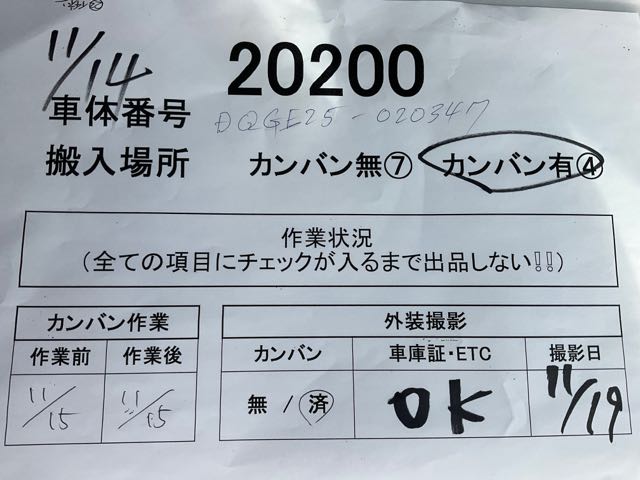 11/14
20200
車体番号 DQGE25-020347
搬入場所 カンバン無⑦ カンバン有④
作業状況
(全ての項目にチェックが入るまで出品しない!!)
カンバン作業
作業前 作業後
11/15 11/15
外装撮影
カンバン 車庫証・ETC 撮影日
無 / 済 OK 11/19